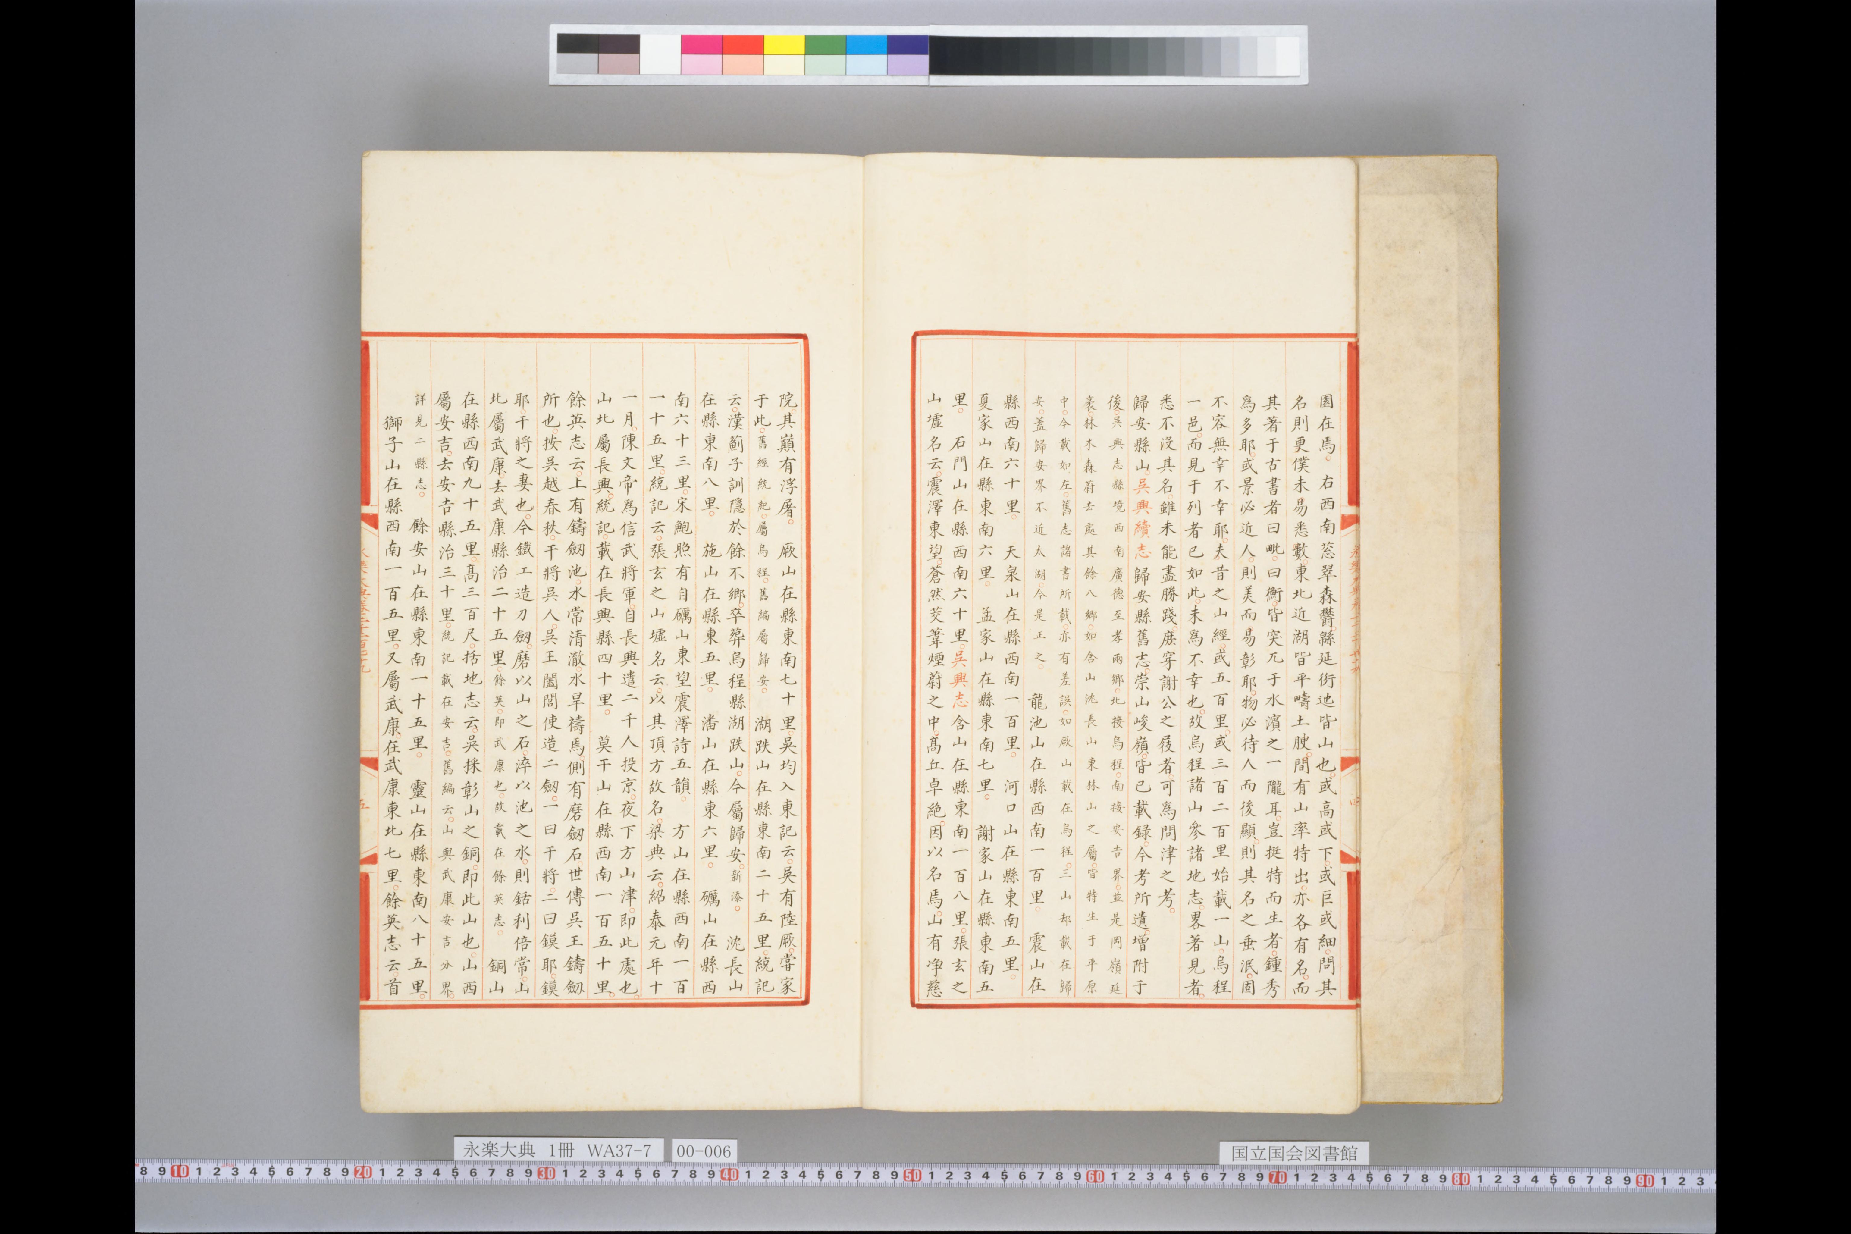 園在焉。右西南蒸翠森欝緜延衍迤皆山也或高或下或巨或細問其
名則更僕未易悉數東北近湖皆平疇土腴間有山率特出亦各有名而
其著于古書者曰毗曰衡皆突兀于水濱之一隴耳豈挺特而生者鍾秀
爲多耶或景必近人則美而易彰耶物必待人而後顯則其名之垂泯固
不容無幸不幸耶夫昔之山經或五百里或三百二百里始載一山烏程
一邑而見于列者已如此未爲不幸也故烏程諸山參諸地志畧著見者
悉不沒其名雖未能盡勝踐庶穿謝公之屐者可爲問津之考。
歸安縣山吳興續志歸安縣舊志崇山峻嶺皆已載錄今考所遺增附于
後吳興志縣境西南廣德至孝兩鄉北接烏程南接安吉界並是岡嶺延
袤林木森蔚去處其餘八鄉如含山洸長山東林山之屬皆特生于平原
中今載如左舊志諸書所載亦有差誤如厥山載在烏程三山却載在歸
安蓋歸安界不近太湖今是正之。龍池山在縣西南一百里。震山在
縣西南六十里。天泉山在縣西南一百里。河口山在縣東南五里。
夏家山在縣東南六里。孟家山在縣東南七里。謝家山在縣東南五
里。石門山在縣西南六十里吳興志含山在縣東南一百八里張玄之
山墟名云震澤東望蒼然茭葦煙蔚之中髙丘卓絶因以名焉山有净慈
院其巔有浮屠。厥山在縣東南七十里吳均入東記云吳有陸厥嘗家
于此舊經統紀屬烏程舊編屬歸安。湖趺山在縣東南二十五里統記
云漢薊子訓隱於餘不鄉卒葬烏程縣湖趺山今屬歸安新添。沈長山
在縣東南八里。施山在縣東五里。潘山在縣東六里。礪山在縣西
南六十三里宋鮑照有自礪山東望震澤詩五韻。方山在縣西南一百
一十五里統記云張玄之山墟名云以其頂方故名梁典云紹泰元年十
一月陳文帝爲信武將軍自長興遣二千人投京夜下方山津即此處也
山北屬長興統記載在長興縣四十里。莫干山在縣西南一百五十里
餘英志云上有鑄劒池水常清澈水旱禱焉側有磨劒石世傳吳王鑄劒
所也按吳越春秋干將吳人吳王闔閭使造二劒一曰干將二曰鏌耶鏌
耶干將之妻也今鐵工造刀劒磨以山之石淬以池之水則銛利倍常山
北屬武康去武康縣治二十五里餘英即武康也故載在餘英志。銅山
在縣西南九十五里髙三百尺括地志云吳採彰山之銅即此山也山西
屬安吉去安吉縣治三十里統記載在安吉舊編云山與武康安吉分界
詳見二縣志。餘安山在縣東南一十五里。靈山在縣東南八十五里
獅子山在縣西南一百五里又屬武康在武康東北七里餘英志云首
永楽大典 1冊 WA37-7 00-006
国立国会図書館